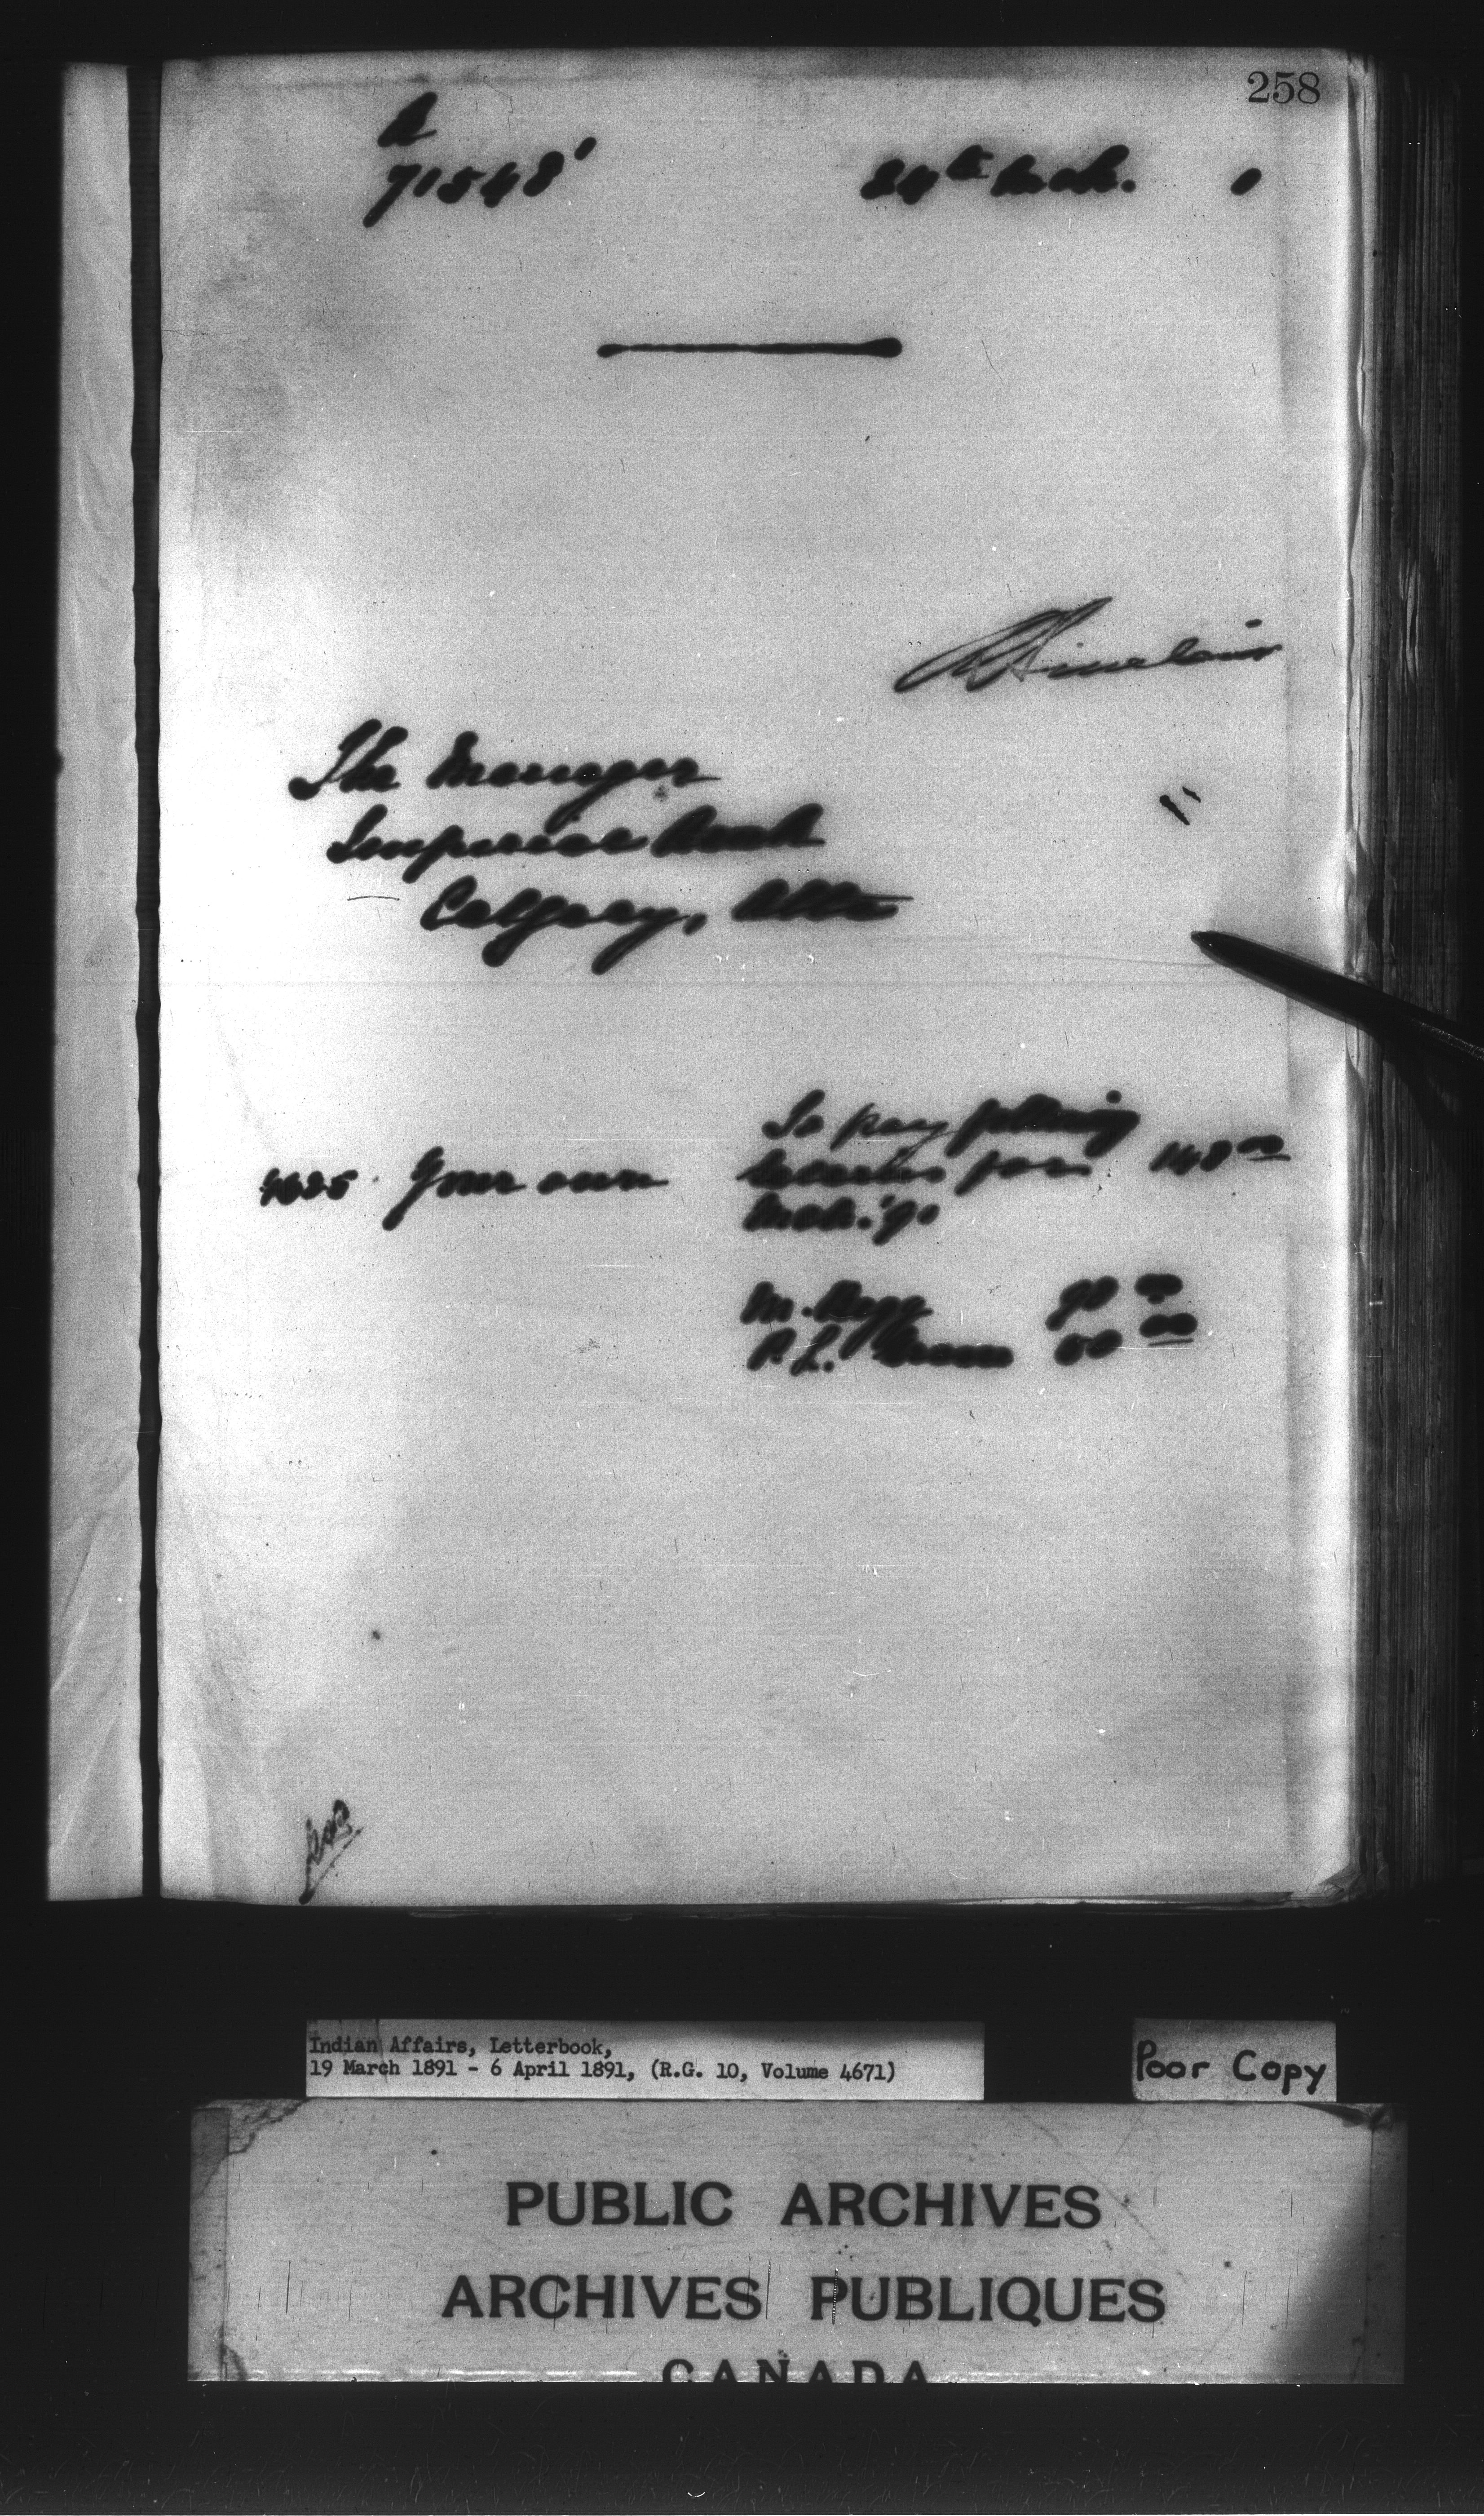 258
A
71548
24th Mch. 1
R Sinclair
The Manager
Imperial Bank
Calgary, Alta
"
To pay following
4625 Your own salaries for 148 00
Mch. '91
M. Begg 98 00
P. L. 50 00
Indian Affairs, Letterbook,
19 March 1891 - 6 April 1891, (R.G. 10, Volume 4671)
Poor Copy
PUBLIC ARCHIVES
ARCHIVES PUBLIQUES
CANADA